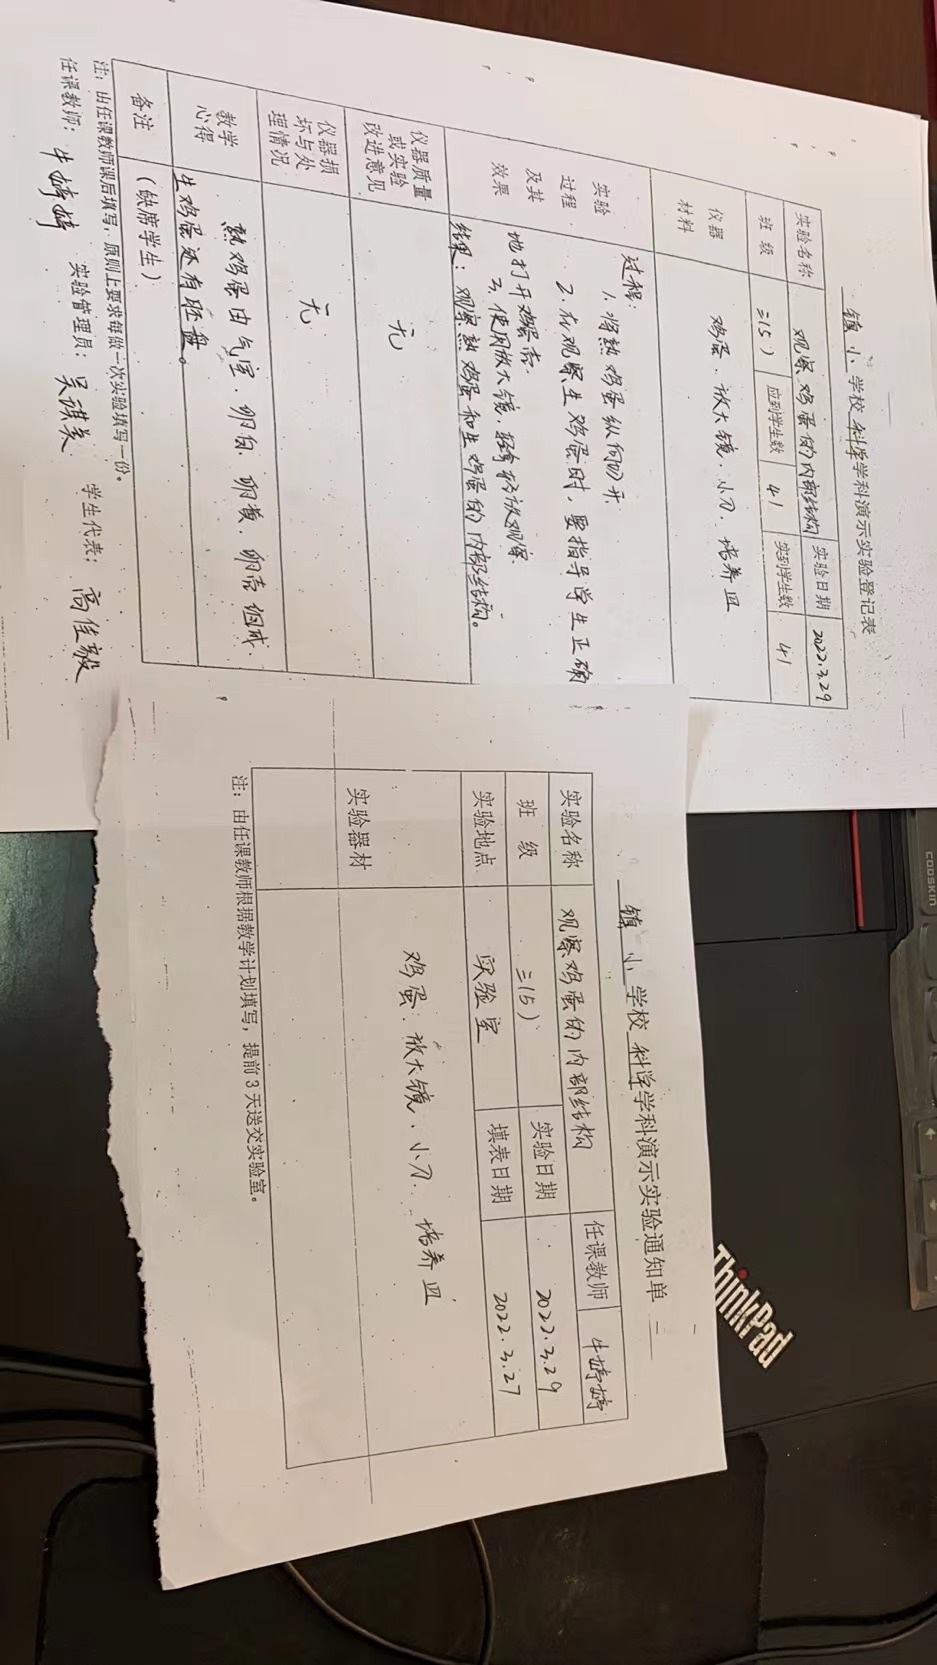 镇小学校科学学科演示实验登记表
实验名称 观察鸡蛋的内部结构 实验日期 2022.3.29
班级 三(5) 应到学生数 41 实到学生数 41
仪器
材料
鸡蛋、放大镜、小刀、培养皿
实验
过程
及其
效果
过程:
1、将熟鸡蛋纵向切开
2、在观察生鸡蛋时,要指导学生正确
地打开鸡蛋壳.
3、使用放大镜,轻拿轻放观察.
结果:观察熟鸡蛋和生鸡蛋的内部结构。
仪器质量
或实验
改进意见
无
仪器损
坏与处
理情况
无
教学
心得
熟鸡蛋由气室、卵白、卵黄、卵壳组成
生鸡蛋还有胚盘。
备注 (缺席学生)
注:由任课教师课后填写,原则上要求每做一次实验填写一份。
任课教师:牛婷婷 实验管理员:吴谋关 学生代表:高佳毅
镇小学校科学学科演示实验通知单
实验名称 观察鸡蛋的内部结构 任课教师 牛婷婷
班级 三(5) 实验日期 2022.3.29
实验地点 实验室 填表日期 2022.3.27
实验器材
鸡蛋、放大镜、小刀、培养皿
注:由任课教师根据教学计划填写,提前3天送交实验室。
ThinkPad
COOSKIN